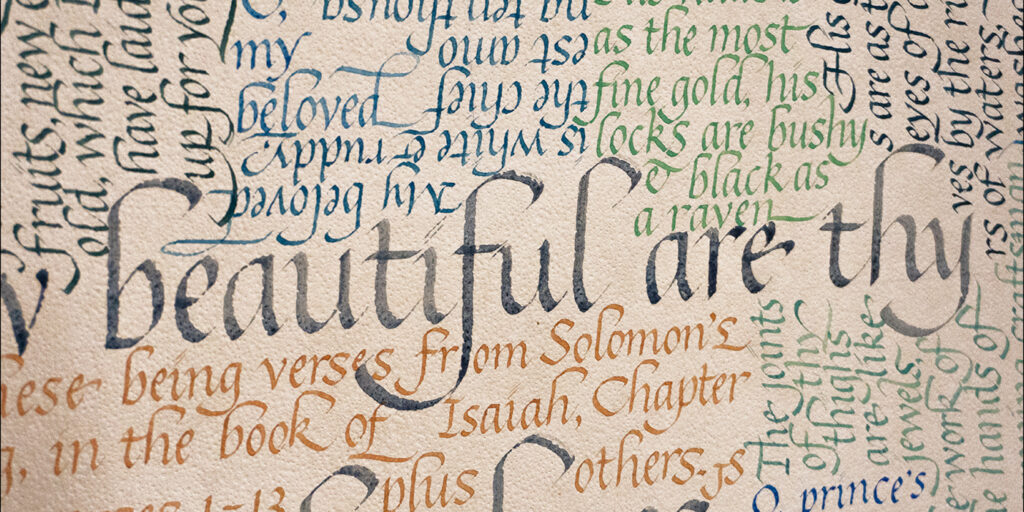 fruits, new
old, which
have laid
up for you
O,
my
beloved
My beloved
is white & ruddy,
the chief
est amo
ng ten thousa
as the most
fine gold, his
locks are bushy
& black as
a raven
His
s are as
eyes of
ves by the
rs of waters,
beautiful are thy
hese being verses from Solomon's
g, in the book of Isaiah, Chapter
plus others. js
The joints
of thy
thighs
are like
jewels,
e work of
e hands of
craftsman
O prince's